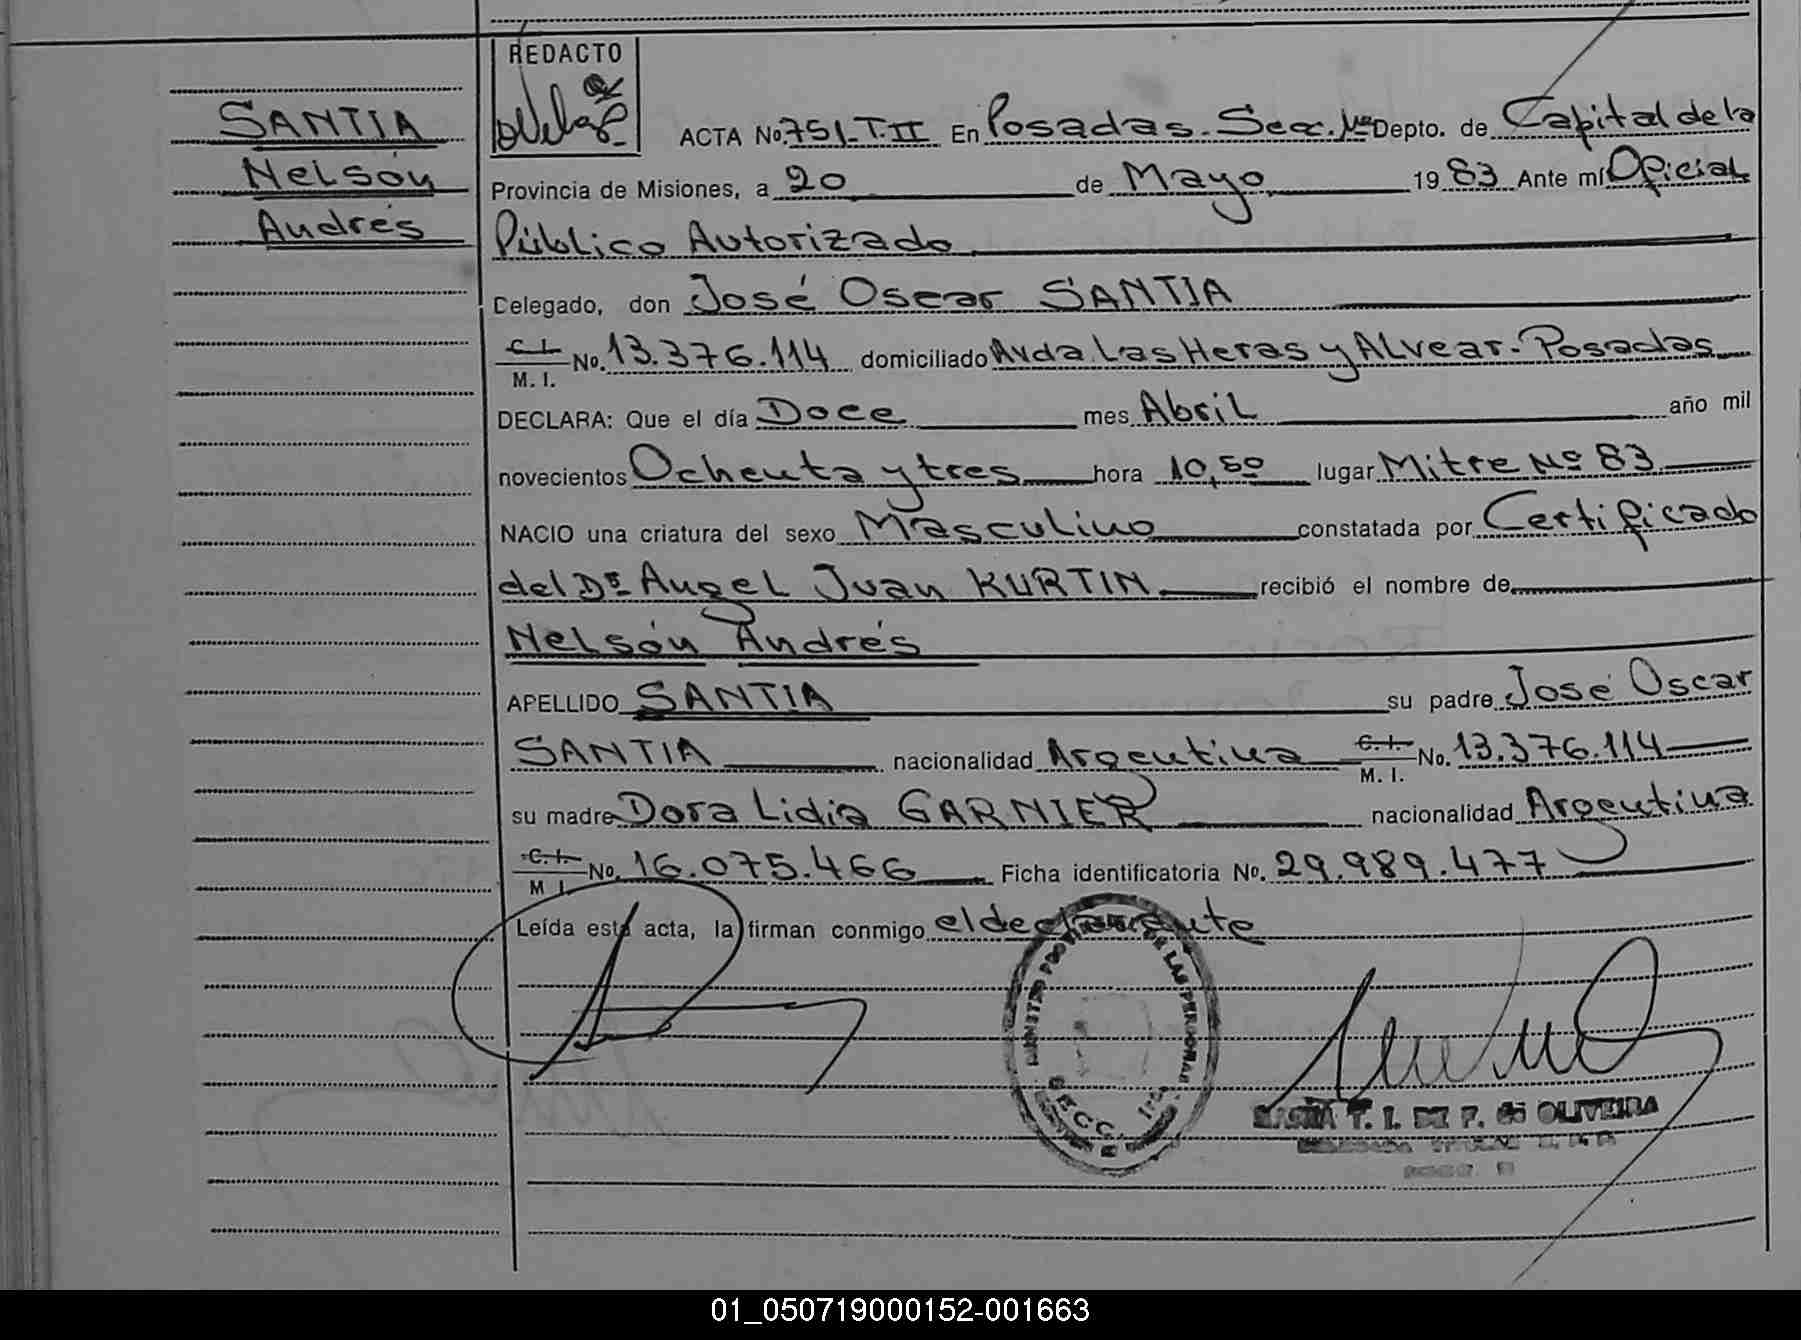 REDACTO
SANTIA
Nelsón
Andrés
ACTA No. 751-T.II En Posadas. Secc. 1ra Depto. de Capital de la
Provincia de Misiones, a 20 de Mayo 1983 Ante mí Oficial
Público Autorizado
Delegado, don José Oscar SANTIA
C. I.
M. I. No. 13.376.114 domiciliado Avda. Las Heras y Alvear - Posadas
DECLARA: Que el día Doce mes Abril año mil
novecientos Ochenta y tres hora 10,50 lugar Mitre Nº 83
NACIO una criatura del sexo Masculino constatada por Certificado
del Dr Angel Juan KURTIN recibió el nombre de
Nelsón Andrés
APELLIDO SANTIA su padre José Oscar
SANTIA nacionalidad Argentina C. I. M. I. No. 13.376.114
su madre Dora Lidia GARNIER nacionalidad Argentina
C. I. M. I. No. 16.075.466 Ficha identificatoria No. 29.989.477
Leída esta acta, la firman conmigo el declarante
DE LAS PERSONAS
SECC.
T. I. DE F. OLIVEIRA
01_050719000152-001663